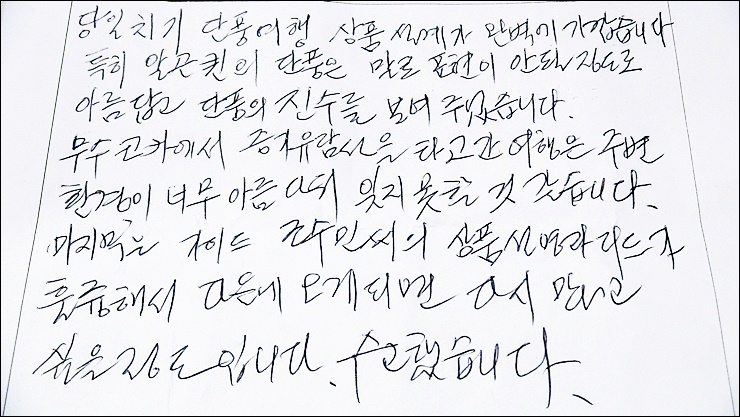 당일치기 단풍여행 상품 설계가 완벽에 가깝습니다
특히 알곤퀸의 단풍은 말로 표현이 안될 정도로
아름답고 단풍의 진수를 보여 주었습니다.
무수코카에서 증기유람선을 타고간 여행은 주변
환경이 너무 아름다워 잊지 못할 것 같습니다.
마지막은 가이드 조수민씨의 상품설명과 리드가
훌륭해서 다음에 오게되면 다시 만나고
싶을정도입니다. 수고했습니다.